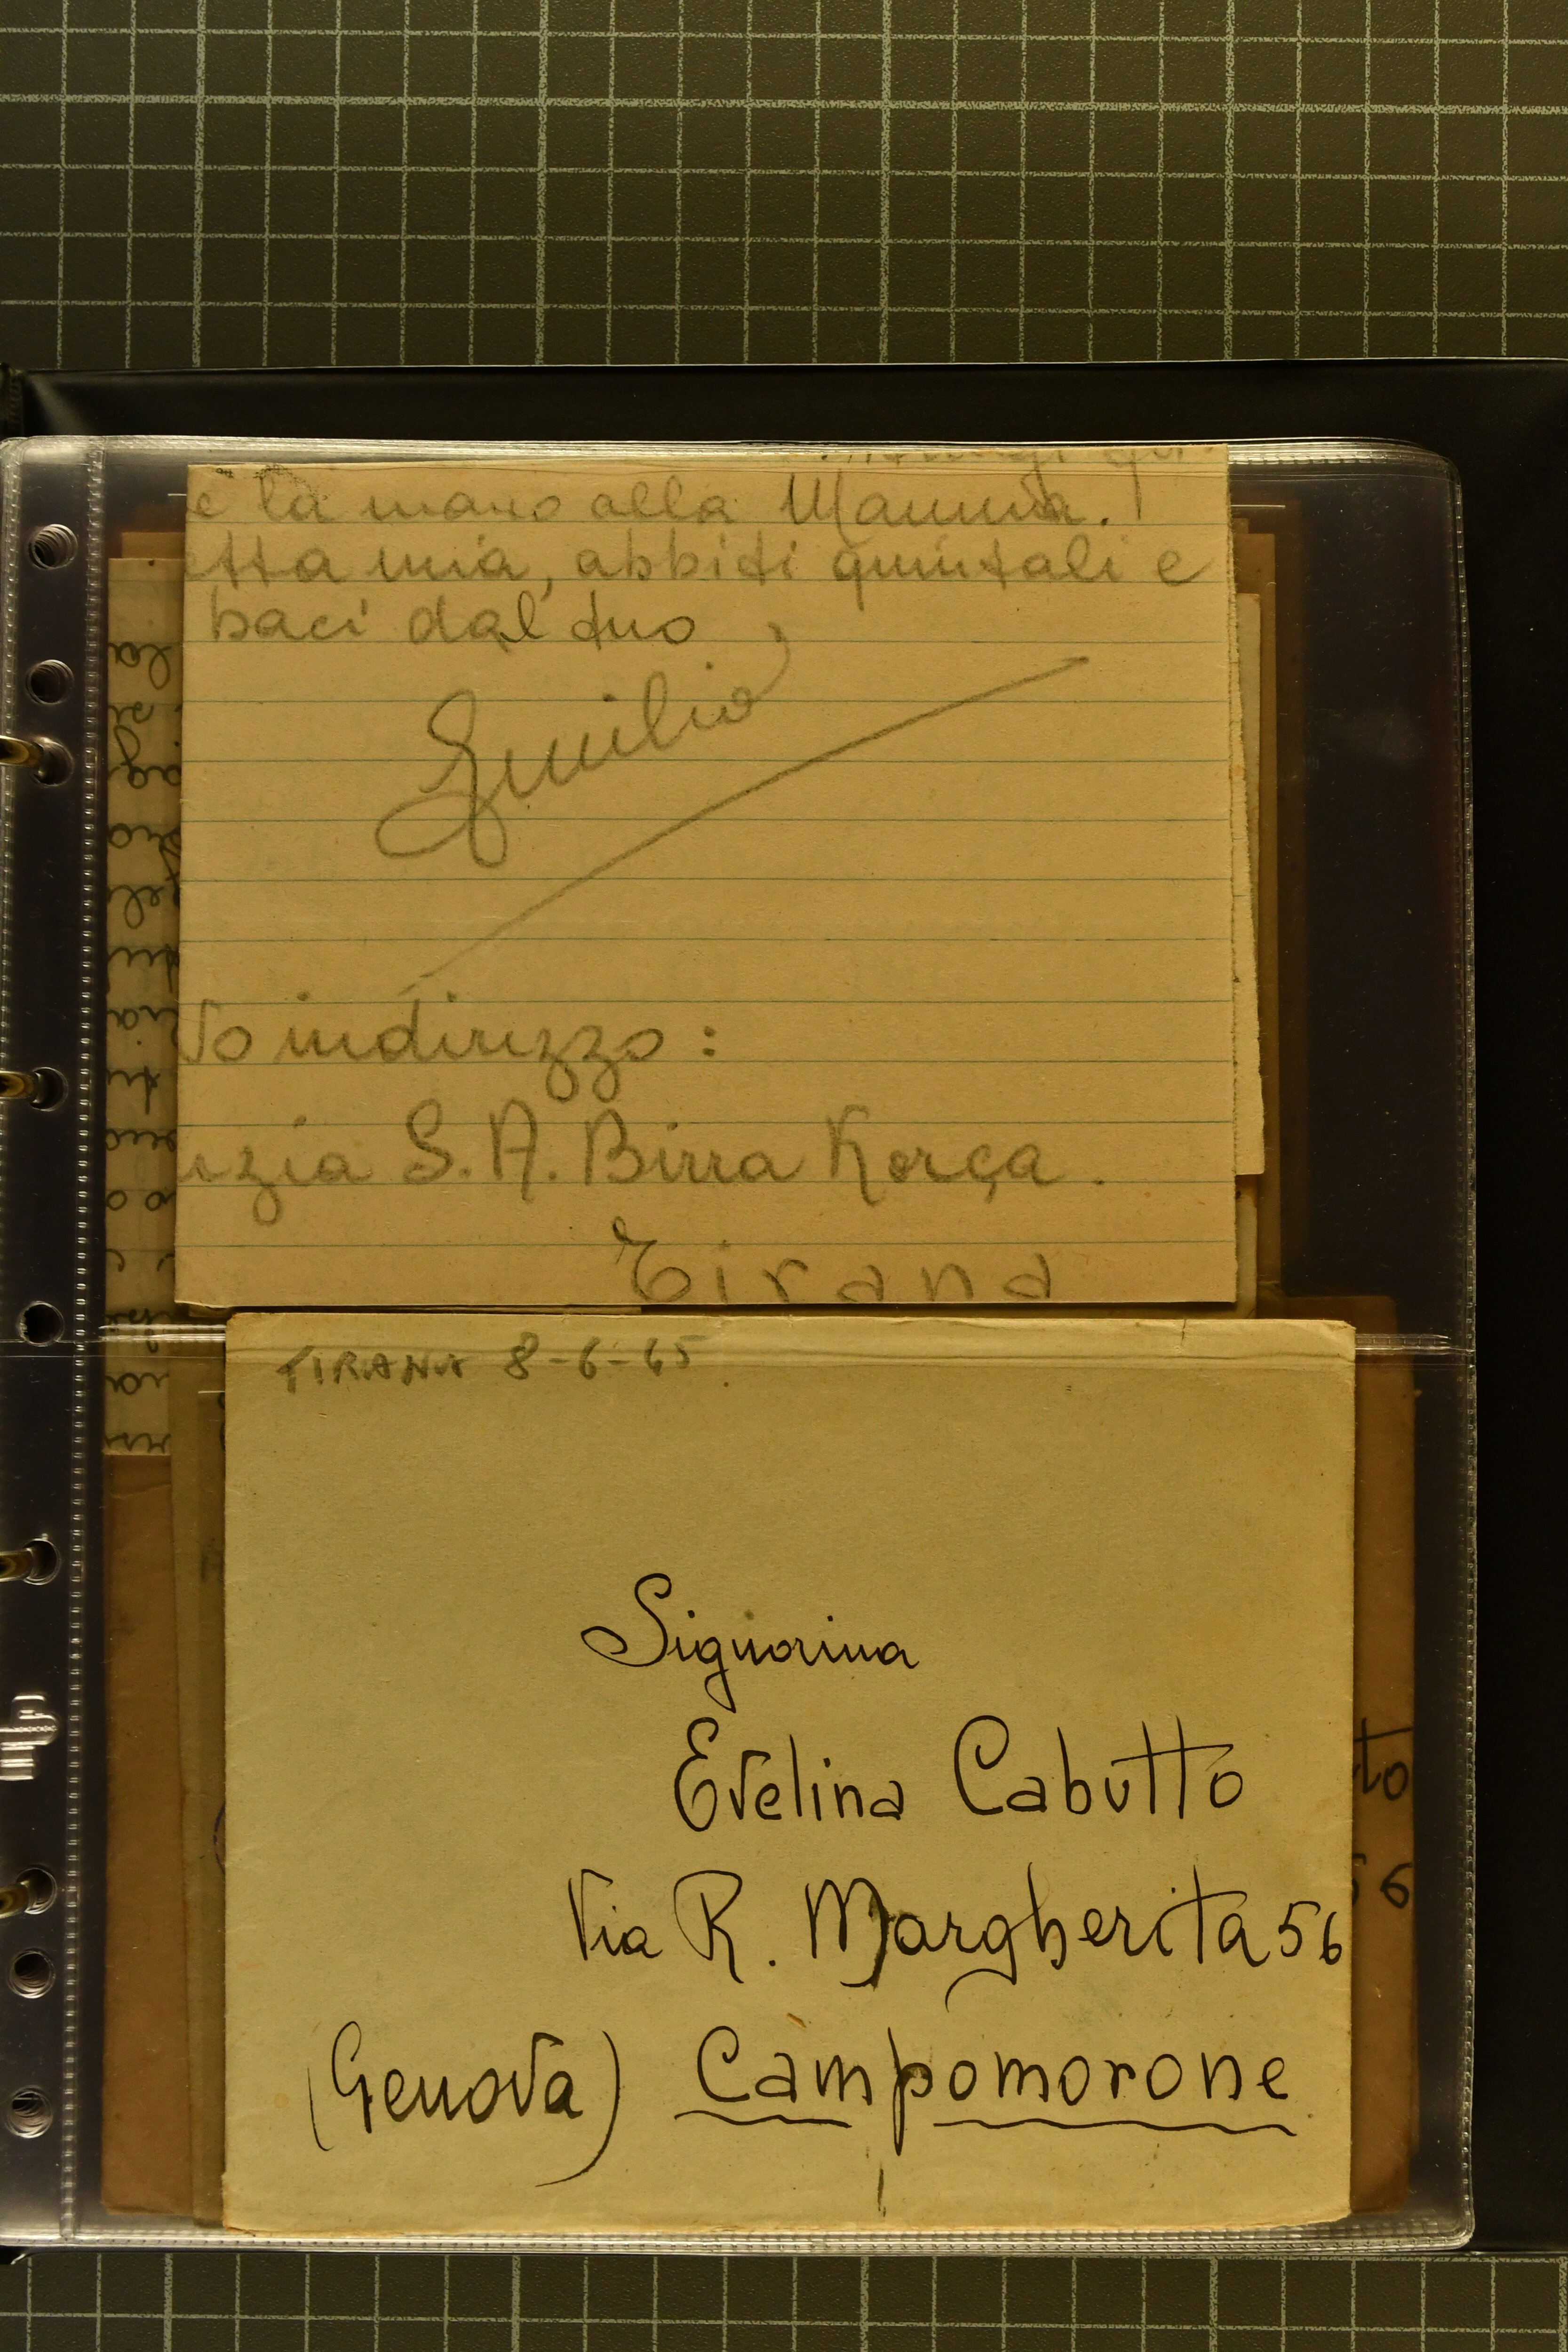 e la mano alla Mamma.
etta mia, abbiti quintali e
baci dal tuo
Emilio
vo indirizzo:
nzia S. A. Birra Korça.
Tirana
TIRANA 8-6-45.
Signorina
Evelina Cabutto
Via R. Margherita 56
(Genova) Campomorone
to
56